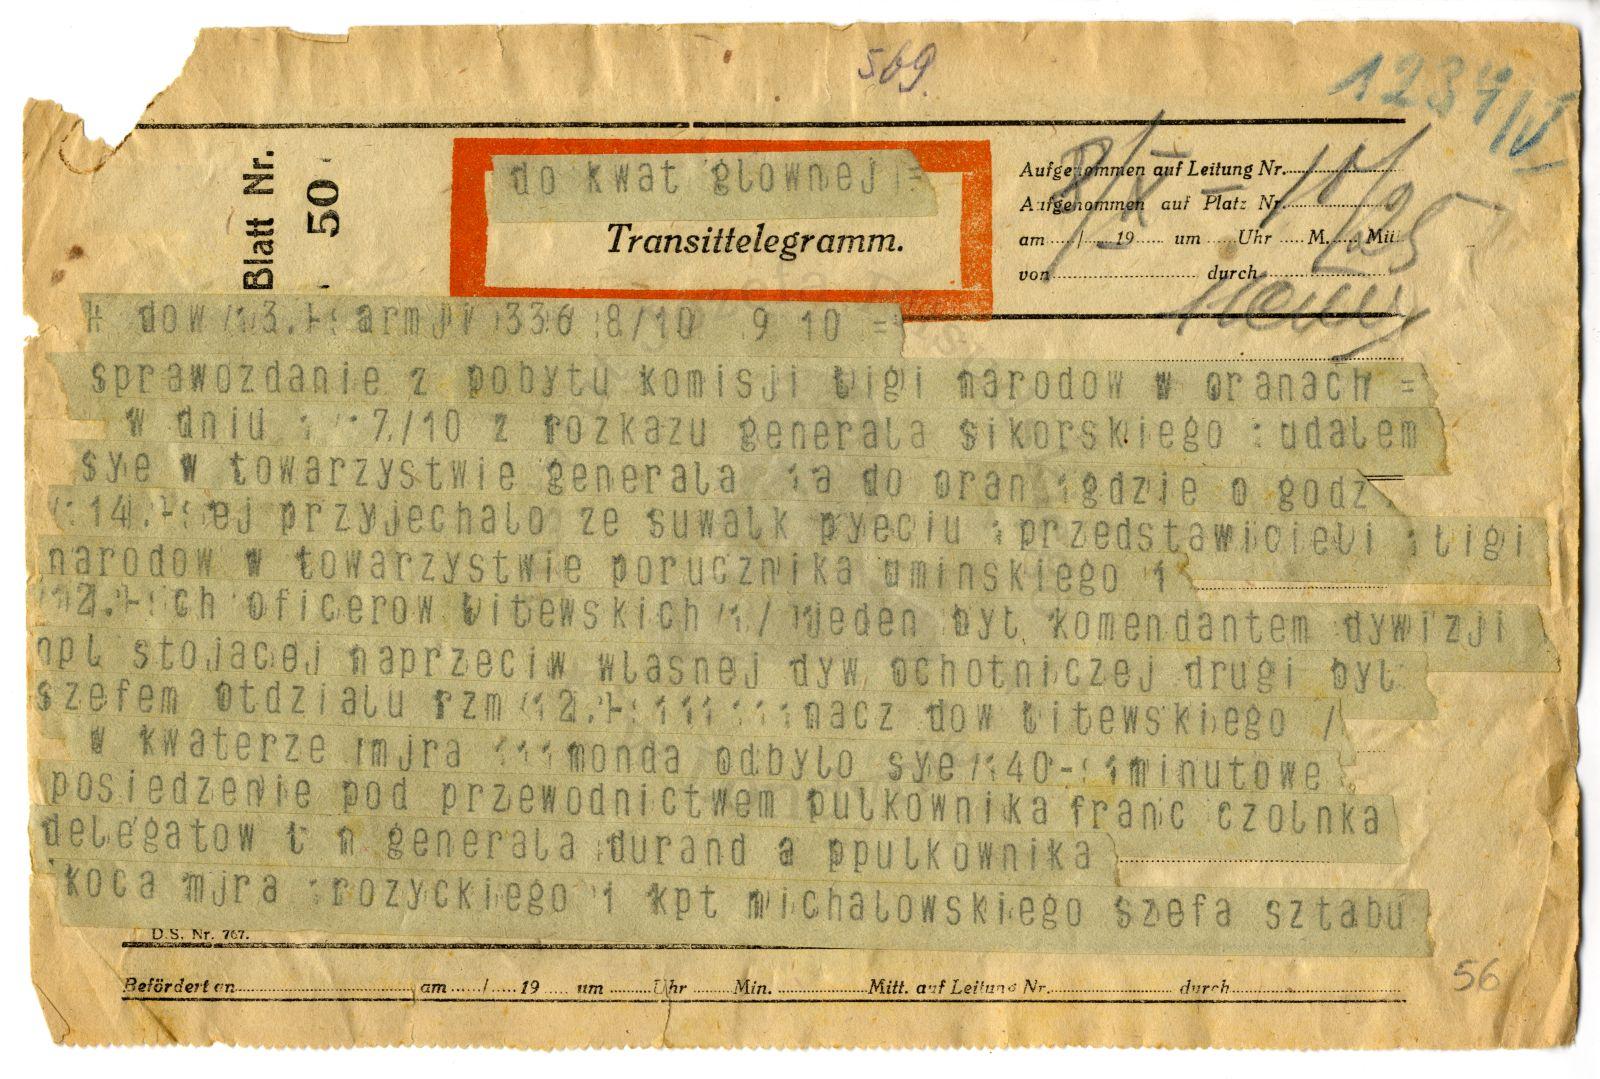 569.
1234/IV
Blatt Nr.
50
do kwat glownej =
Transittelegramm.
Aufgenommen auf Leitung Nr.
Aufgenommen auf Platz Nr.
am / 19 um Uhr M. Mit
von durch
8/X - 10/25
dow /3. armji 336 8/10 9 10 =
sprawozdanie z pobytu komisji ligi narodow w oranach =
w dniu 7/10 z rozkazu generala sikorskiego : udalem
sye w towarzystwie generala do oran gdzie o godz
14.- ej przyjechalo ze suwalk pyeciu przedstawicieli ligi
narodow w towarzystwie porucznika uminskiego i
2.- ch oficerow litewskich / jeden byl komendantem dywizji
npl stojacej naprzeciw wlasnej dyw ochotniczej drugi byl
szefem otdzialu rzm 2.- nacz dow litewskiego /
w kwaterze mjra monda odbylo sye 40- minutowe
posiedzenie pod przewodnictwem pulkownika franc czolnka
delegatow l n generala durand a ppulkownika
koca mjra rozyckiego i kpt michalowskiego szefa sztabu
D.S. Nr. 767.
Befördert an am / 19 um Uhr Min. Mitt. auf Leitung Nr. durch
56